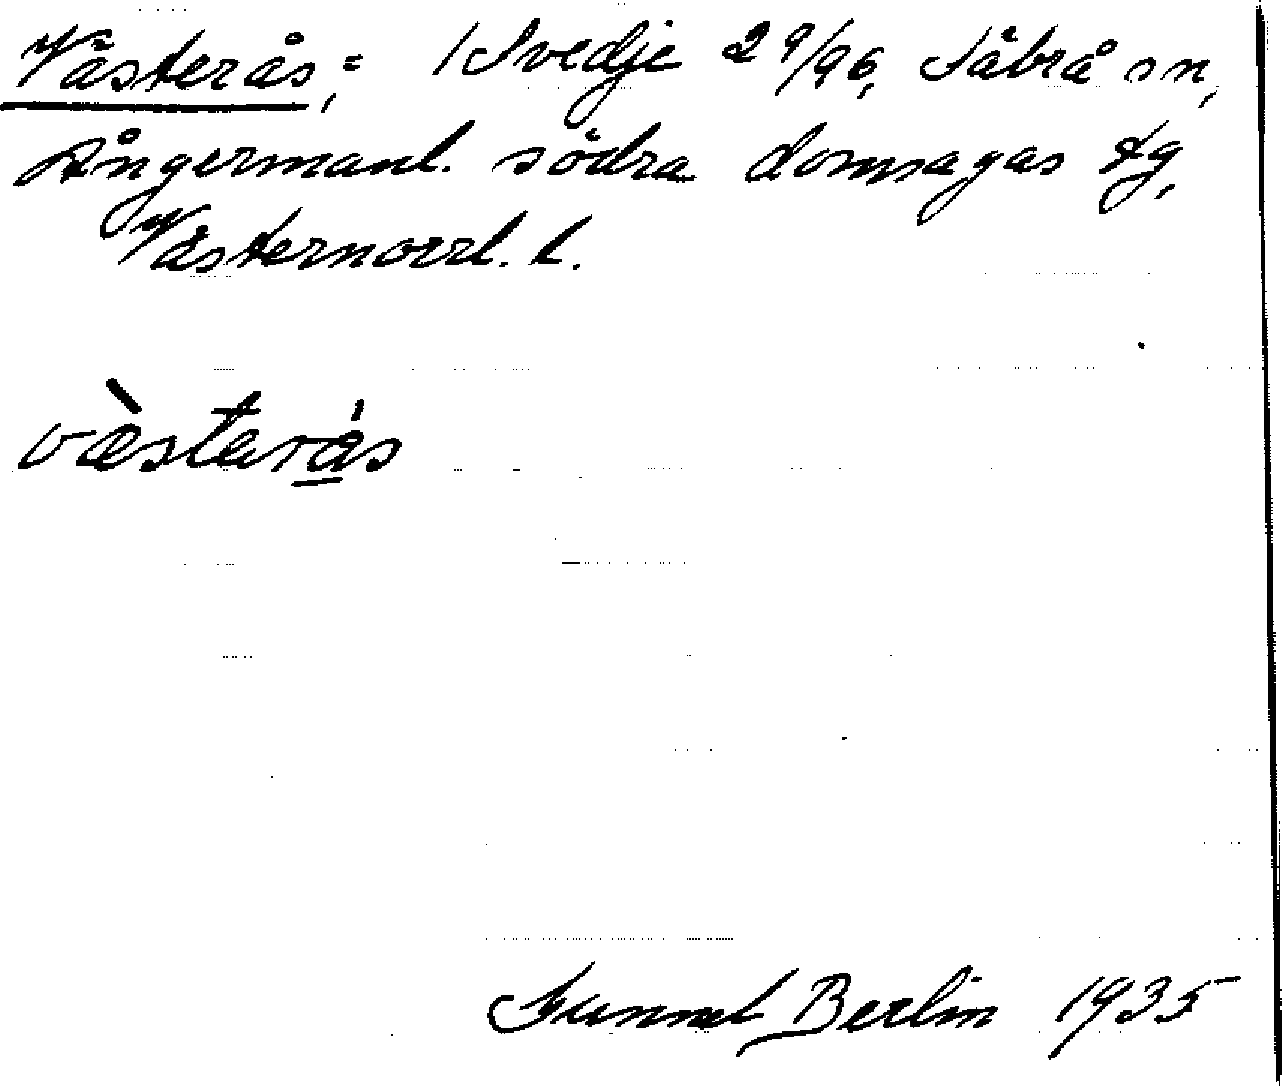 Västerås, = / Svedje 2 9/96, Säbrå sn,
Ångermanl. södra domsagas tg,
Västernorrl. l.
væ̀staråś
Gunnel Berlin 1935